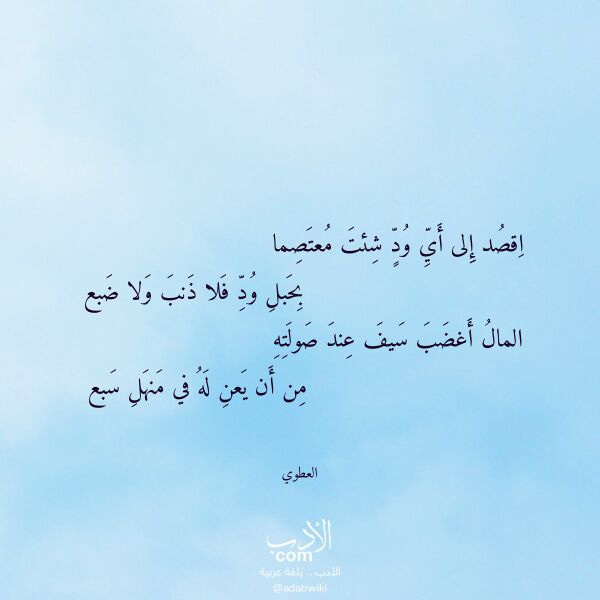 اِقصُد إِلى أَيِّ وُدٍّ شِئتَ مُعتَصِما
بِحَبلِ وُدِّ فَلا ذَنبَ وَلا ضَبع
المالُ أَغضَبَ سَيفَ عِندَ صَولَتِهِ
مِن أَن يَعنِ لَهُ في مَنهَلِ سَبع
العطوي
الأدب
com
الأدب .. بلغة عربية
@adabwiki